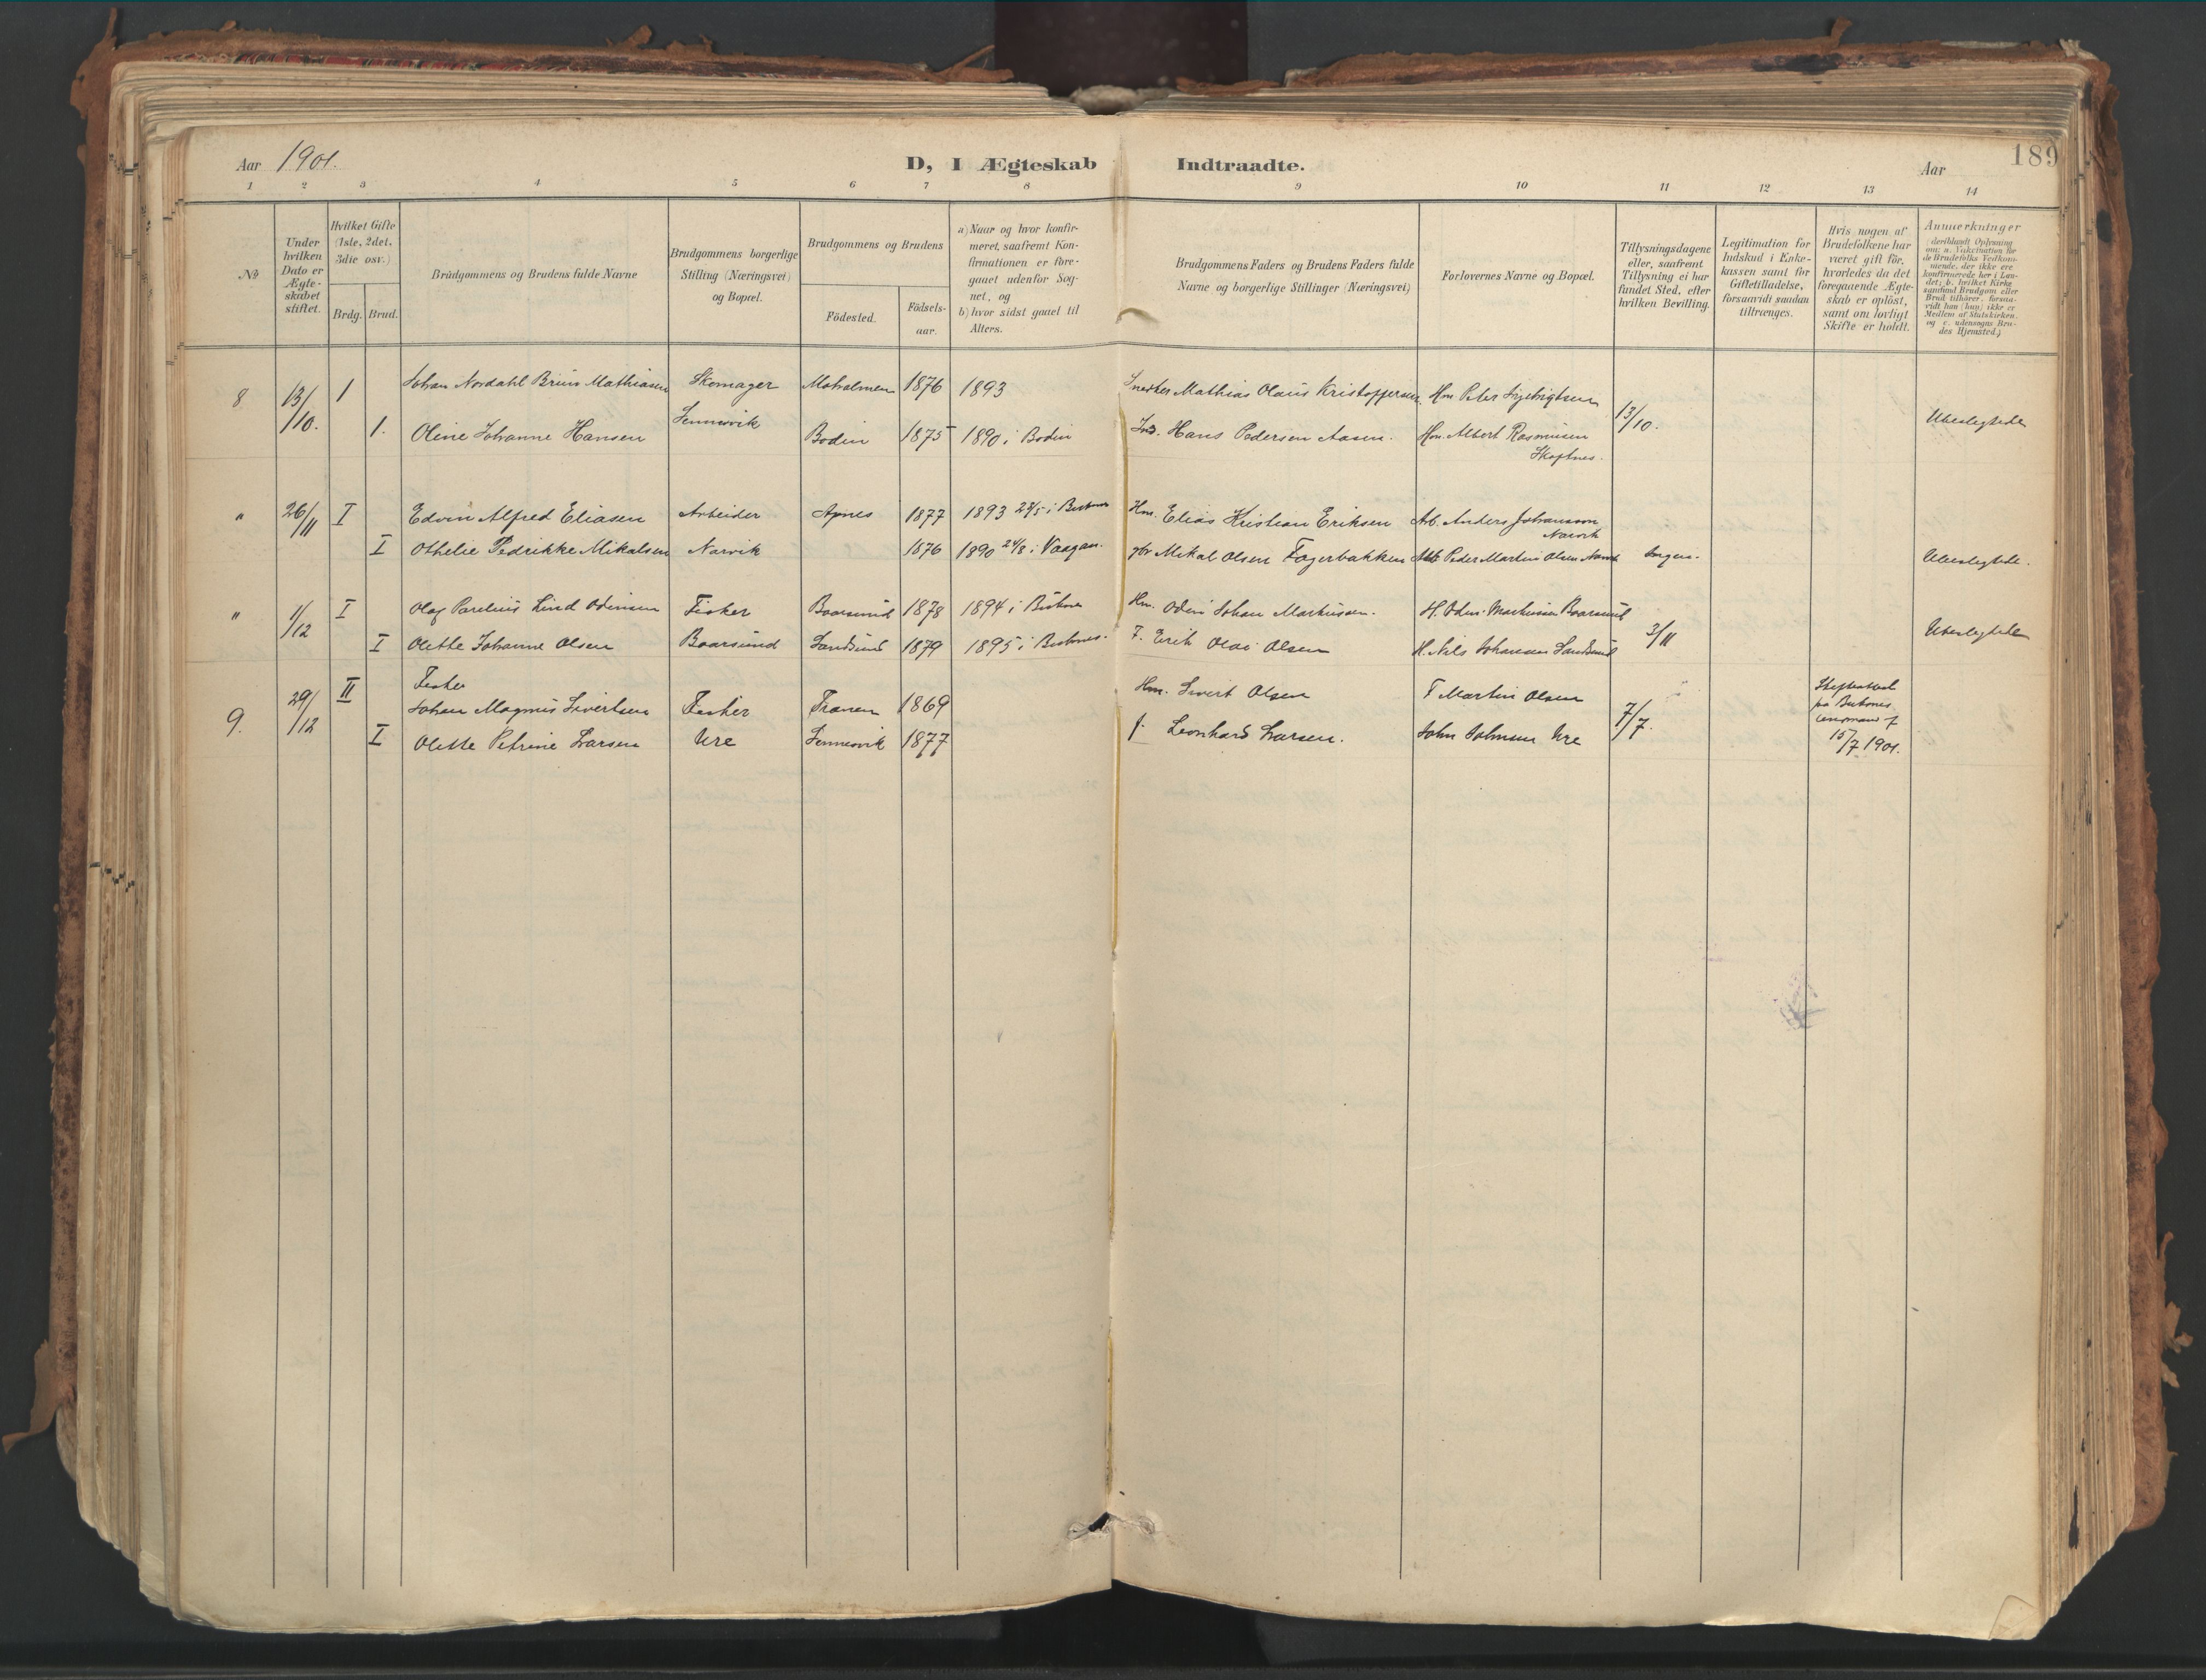 Aar 1901.
D, I Ægteskab Indtraadte.
Aar
189
1 2 3 4 5 6 7 8 9 10 11 12 13 14
No
Under hvilken Dato er Ægteskabet stiftet.
Hvilket Gifte (1ste, 2det, 3die osv.)
Brdg. Brud.
Brudgommens og Brudens fulde Navne
Brudgommens borgerlige Stilling (Næringsvei) og Bopæl.
Brudgommens og Brudens
Födested.
Födsels-aar.
a) Naar og hvor konfirmeret, saafremt Konfirmationen er foregaaet udenfor Sognet, og
b) hvor sidst gaaet til Alters.
Brudgommens Faders og Brudens Faders fulde Navne og borgerlige Stillinger (Næringsvei)
Forlovernes Navne og Bopæl.
Tillysningsdagene eller, saafremt Tillysning ei har fundet Sted, efter hvilken Bevilling.
Legitimation for Indskud i Enkekassen samt for Giftetilladelse, forsaavidt saadan tiltrænges.
Hvis nogen af Brudefolkene har været gift för, hvorledes da det foregaaende Ægteskab er oplöst, samt om lovligt Skifte er holdt.
Anmærkninger
(deriblandt Oplysning om: a. Vakcination for de Brudefolks Vedkommende, der ikke ere konfirmerede her i Landet; b. hvilket Kirkesamfund Brudgom eller Brud tilhörer, forsaavidt han (hun) ikke er Medlem af Statskirken, og c. udensogns Brudes Hjemsted.)
8 13/10. 1 Johan Nordahl Bruun Mathiasen Skomager Moholmen 1876 1893 Snedker Mathias Olaus Kristoffersen Hm Peter
Sennesvik
1. Oline Johanne Hansen Bodin 1875 1890 i Bodin Ind. Hans Pedersen Aasen. Hm. Albert Rasmussen 13/10. Ubeslegtede
Skaftnes.
" 26/11 I Edvin Alfred Eliasen Arbeider Apnes 1877 1893 28/5 i Buksnes Hm. Elias Kristian Eriksen Arb. Anders Johansson
Narvik
I Othelie Fedrikke Mikalsen Narvik 1876 1890 24/8 i Vaagan. Mikal Olsen Fagerbakken Peder Martin Olsen Narvik Ingen. Ubeslegtede.
" 1/12 I Olaf Parelius Lind Odinsen Fisker Baarsund 1878 1894 i Buksnes Hm. Odin Johan Markussen. H. Odin Markussen Baarsund
I Olette Johanne Olsen Baarsund Sandsund 1879 1895 i Buksnes. F. Erik Olai Olsen H. Nils Johansen Sandsund 3/11 Ubeslegtede
Fisker
9. 29/12 II Johan Magnus Sivertsen Fisker Tranen 1869 Hm. Sivert Olsen F Martin Olsen
I Olette Petrine Larsen Ure Sennesvik 1877 f. Leonhard Larsen. John Johnsen Ure 7/7.
Skifteattest
fra Buksnes
lensmand f
15/7 1901.